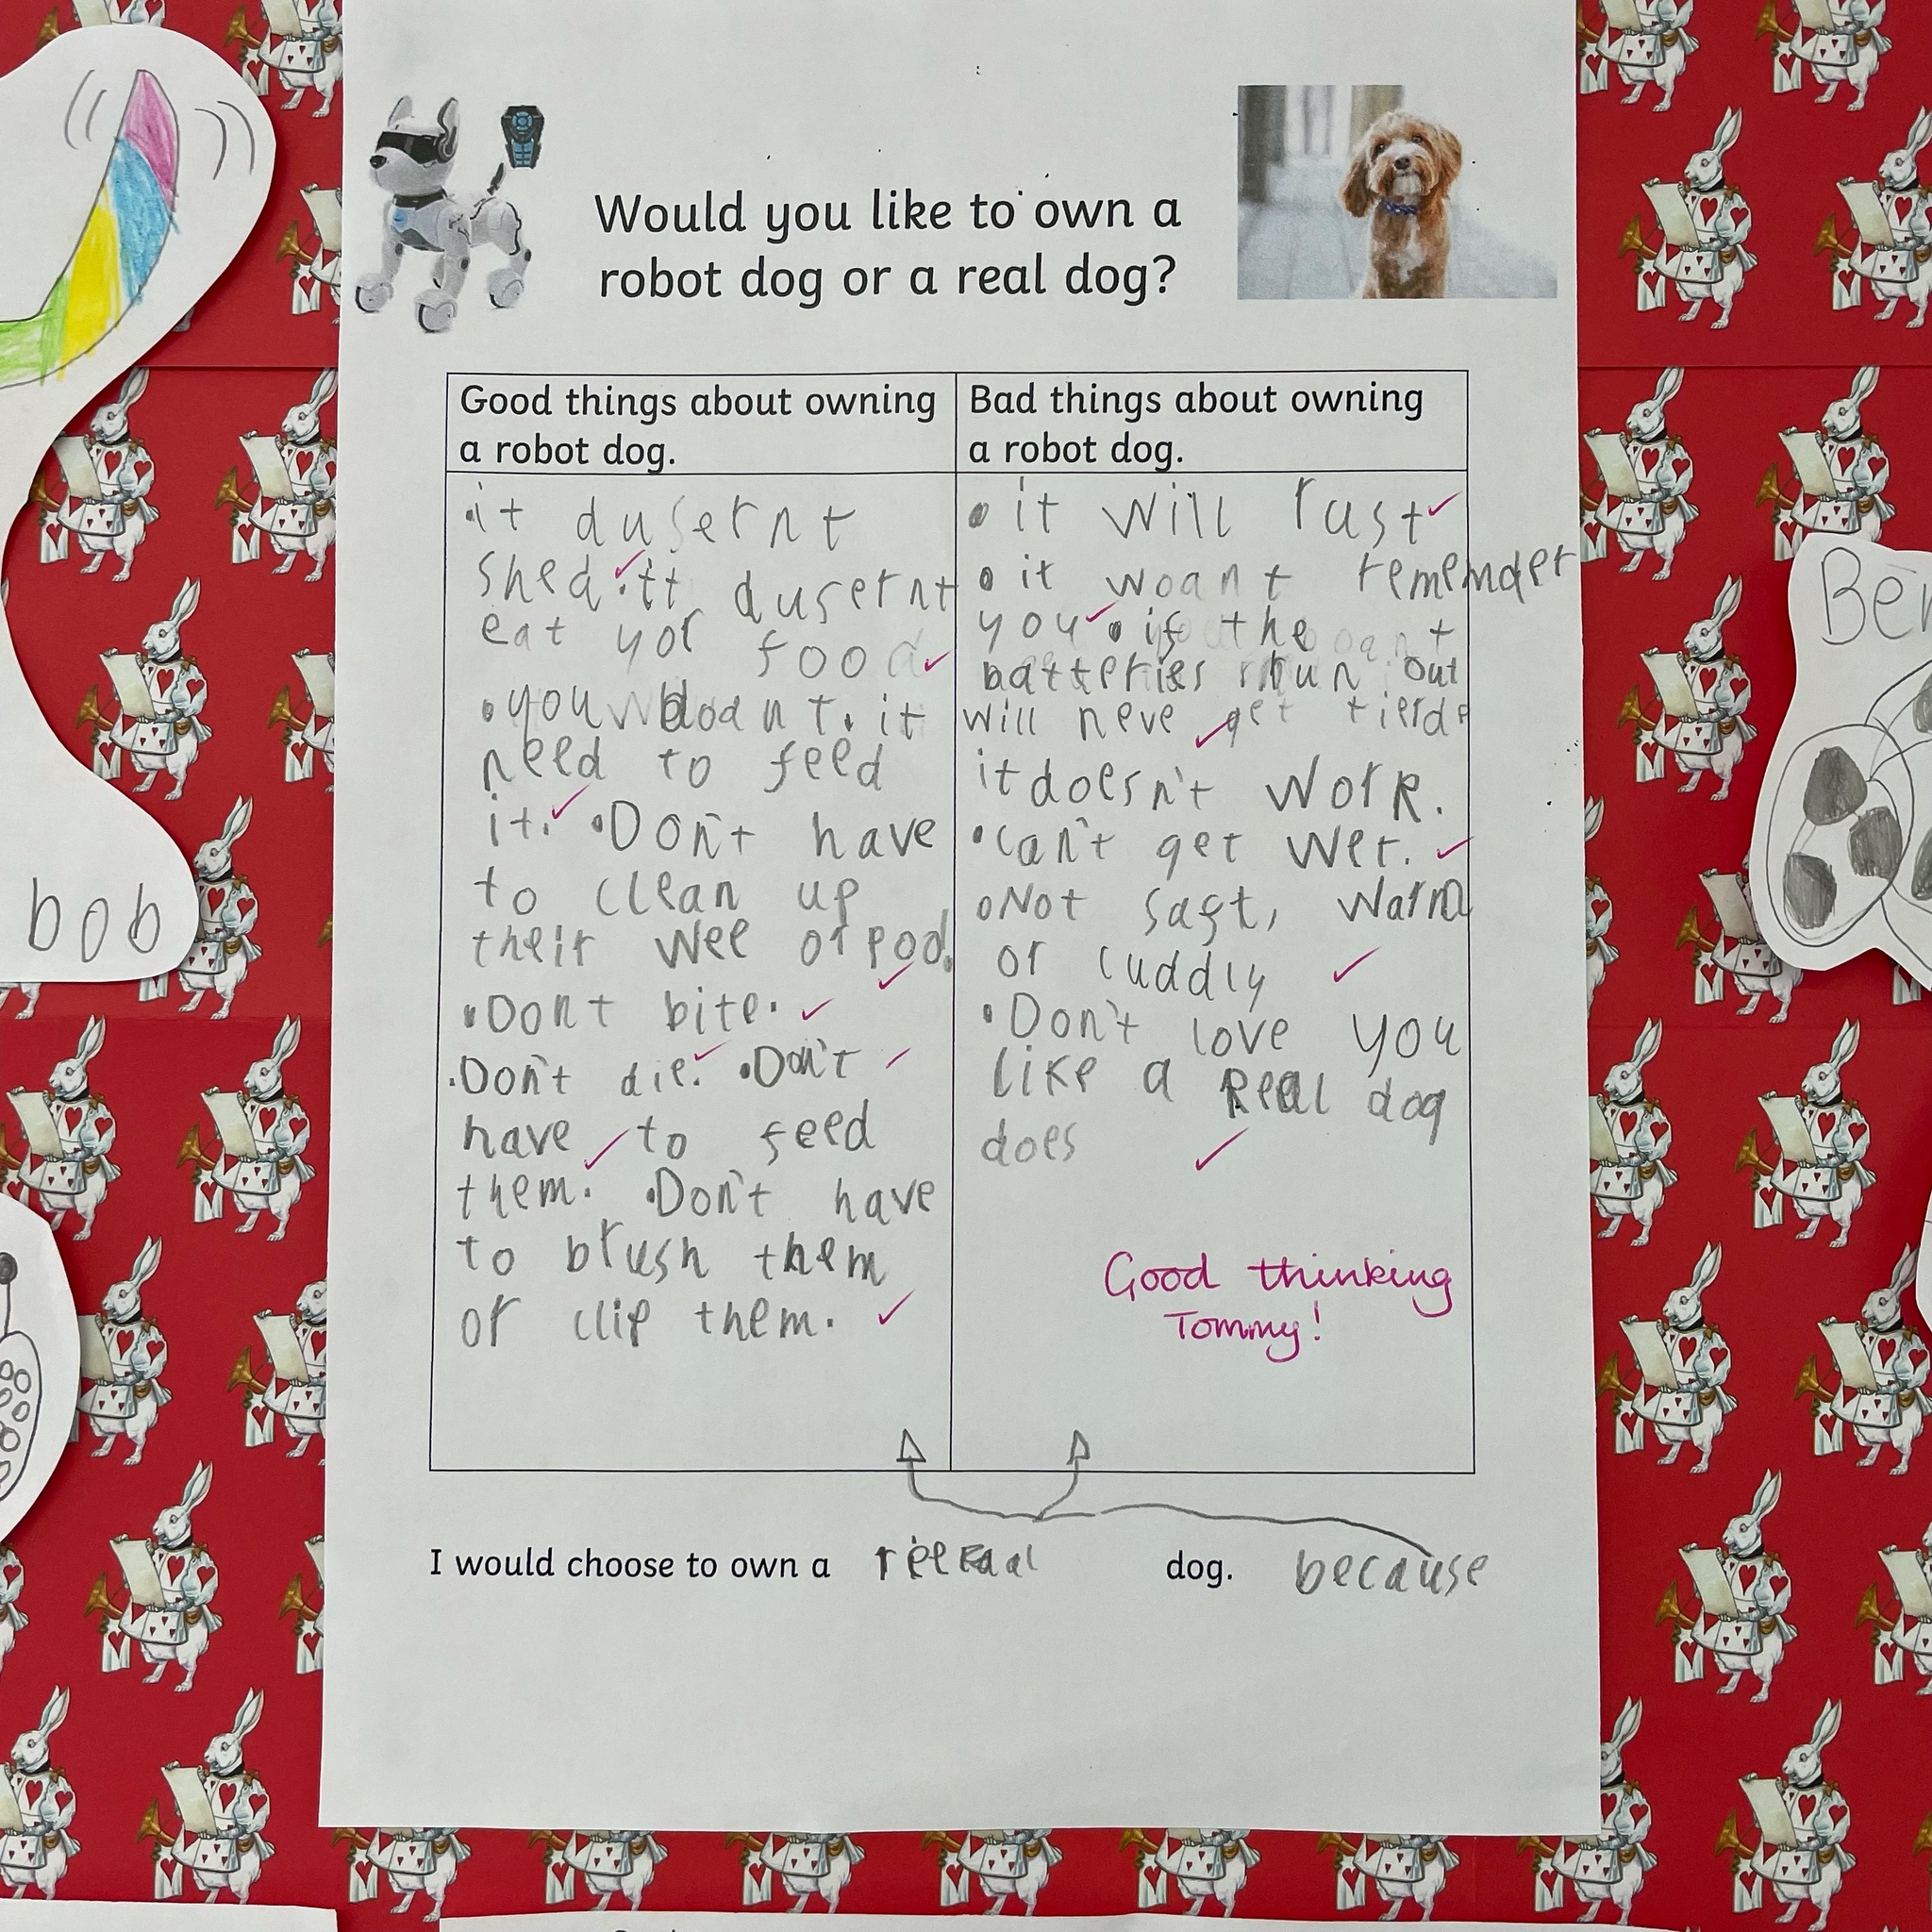 Would you like to own a
robot dog or a real dog?
Good things about owning
a robot dog.
•it dusernt
shed •it dusernt
eat yor food
•you doant it
need to feed
it. •Don't have
to clean up
their wee or poo!
•Dont bite.
•Don't die. •Don't
have to feed
them. •Don't have
to brush them
or clip them.
Bad things about owning
a robot dog.
•it will rust
•it woant rememder
you • if the
batteries run out
will neve get tierd
it doesn't work.
•can't get wet.
•Not saft, warm
or cuddly
•Don't love you
like a Real dog
does
Good thinking
Tommy!
I would choose to own a dog. because
bob
Ber